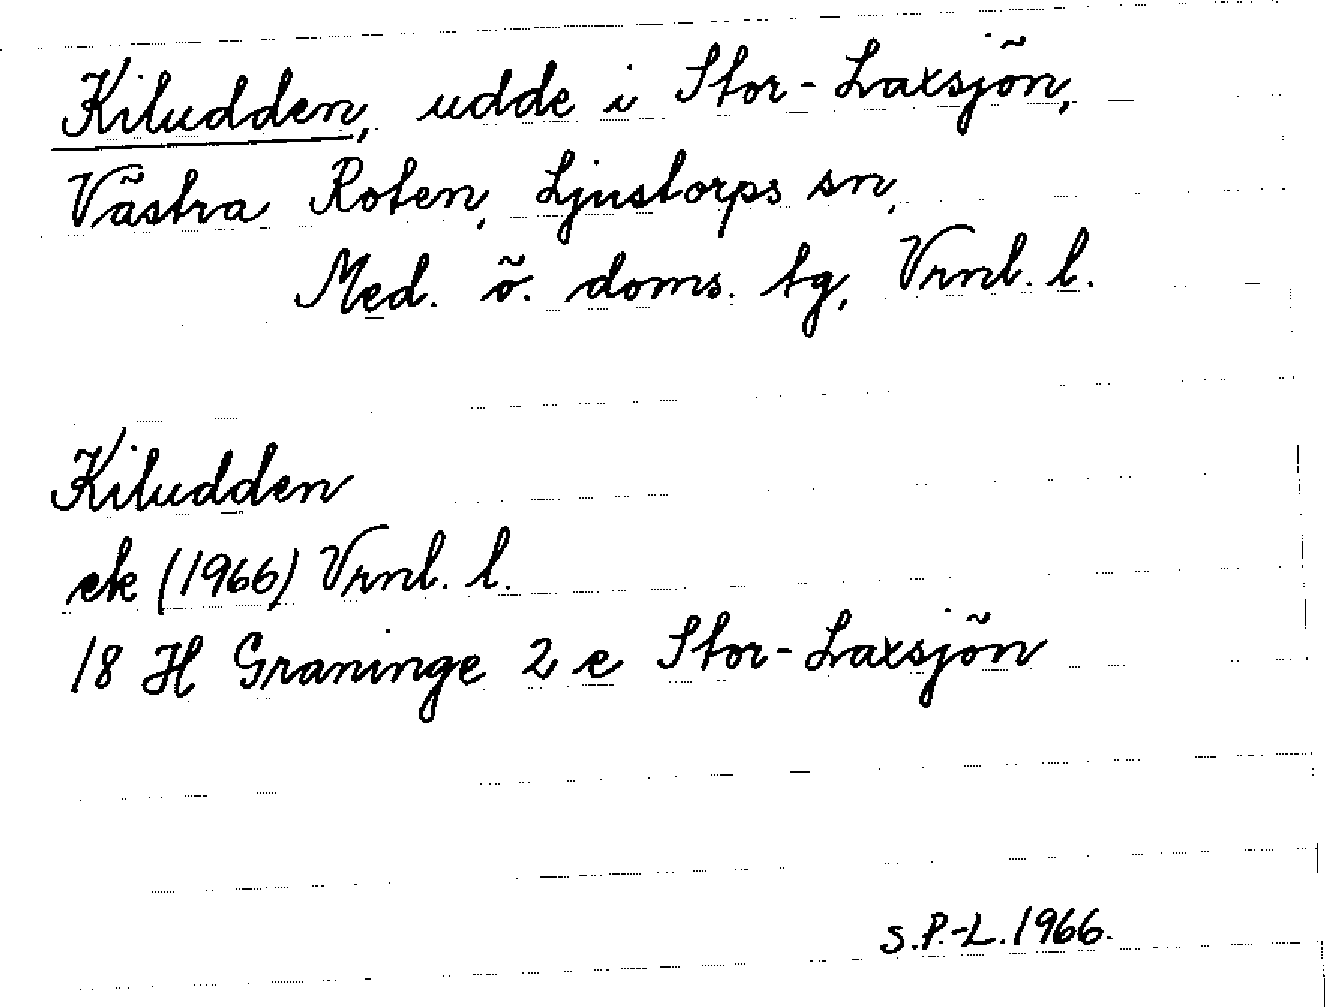 Kiludden, udde i Stor-Laxsjön,
Västra Roten, Ljustorps sn,
Med. ö. doms. tg, Vrnl. l.
Kiludden
ek (1966) Vrnl. l.
18 H Graninge 2 e Stor-Laxsjön
S.P.-L. 1966.